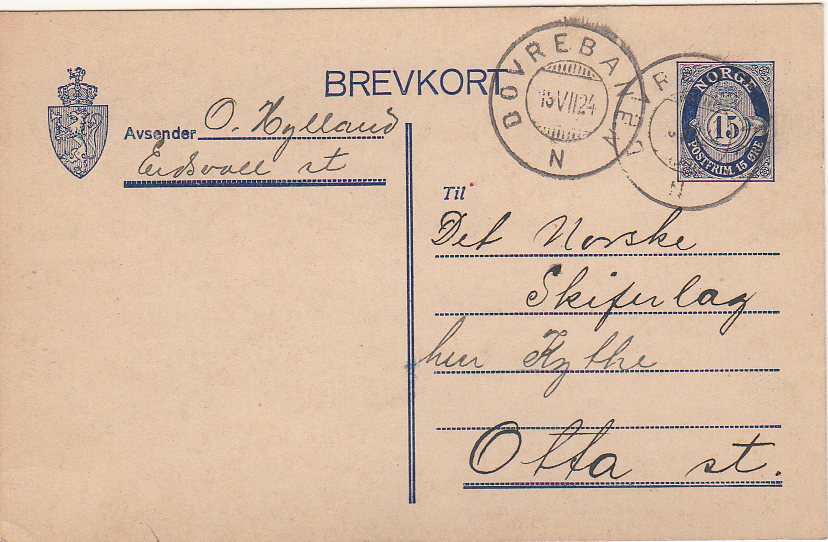 BREVKORT
DOVREBANEN
13 VII 24
N
NORGE
15
POSTFRIM. 15 ØRE
N
Avsender O. Hylland
Eidsvoll st
Til
Det Norske
Skiferlag
herr Kythe
Otta st.